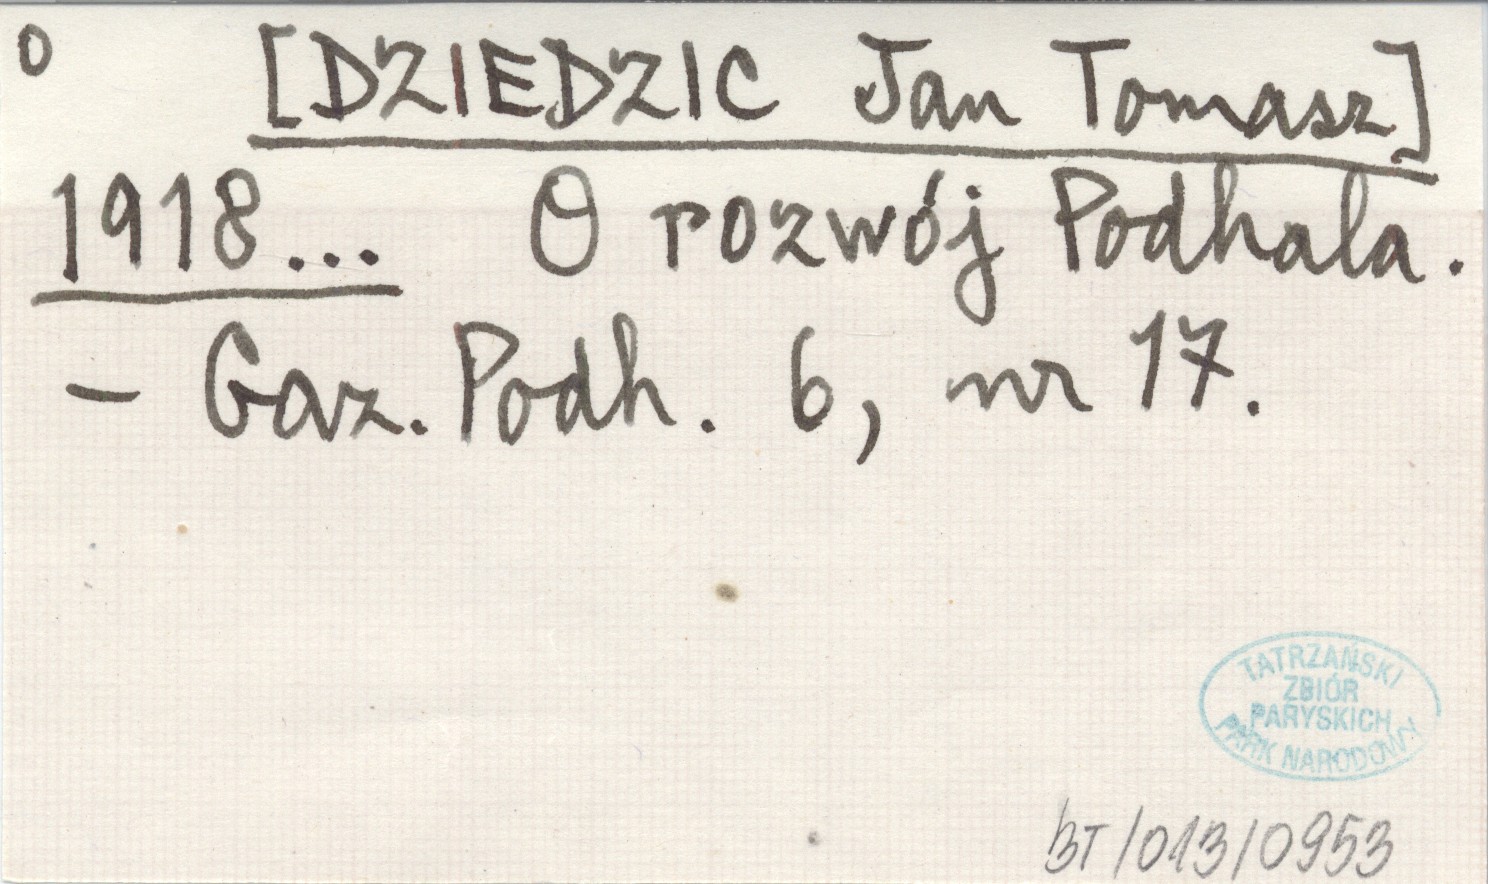 o [DZIEDZIC Jan Tomasz]
1918... O rozwój Podhala.
– Gaz. Podh. 6, nr 17.
TATRZAŃSKI
ZBIÓR
PARYSKICH
PARK NARODOWY
BT/013/0953